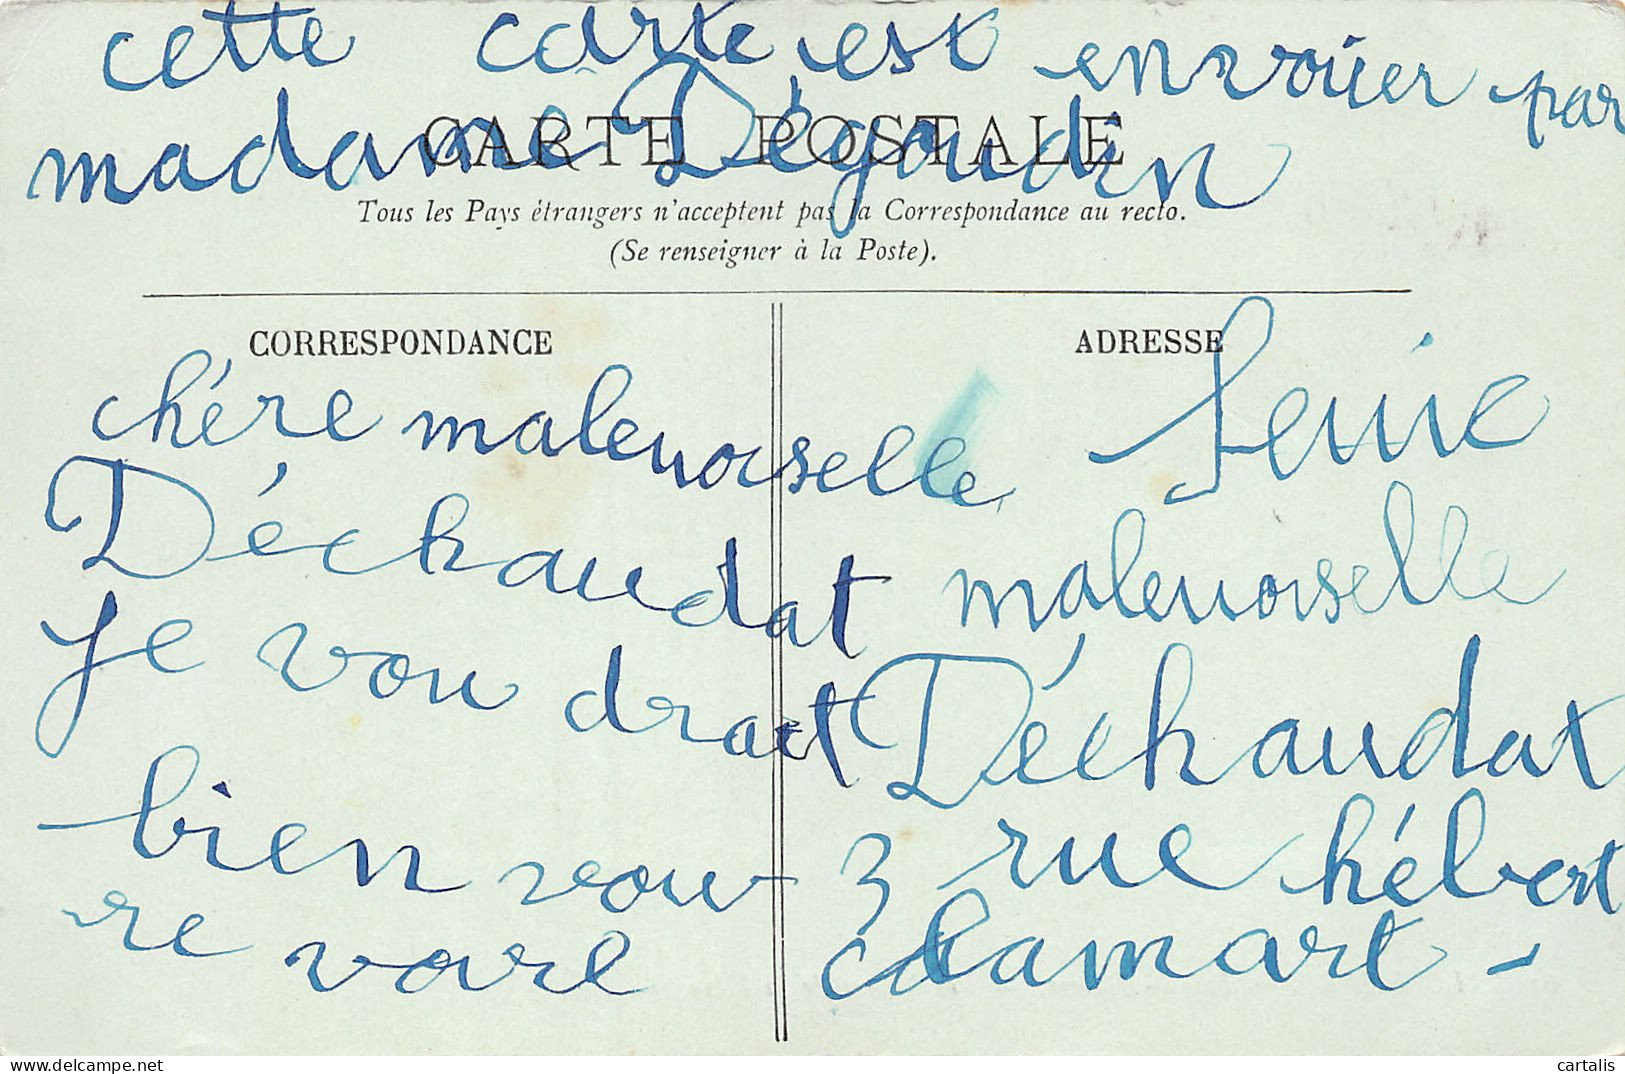 cette carte est envoiier par
madame Dégoudin
CARTE POSTALE
Tous les Pays étrangers n'acceptent pas la Correspondance au recto.
(Se renseigner à la Poste).
CORRESPONDANCE
chére malenoiselle
Déchaudat
je vou drait
bien vou
re voire
ADRESSE
Seine
malenoiselle
Déchaudat
3 rue hébert
clamart -
cartalis